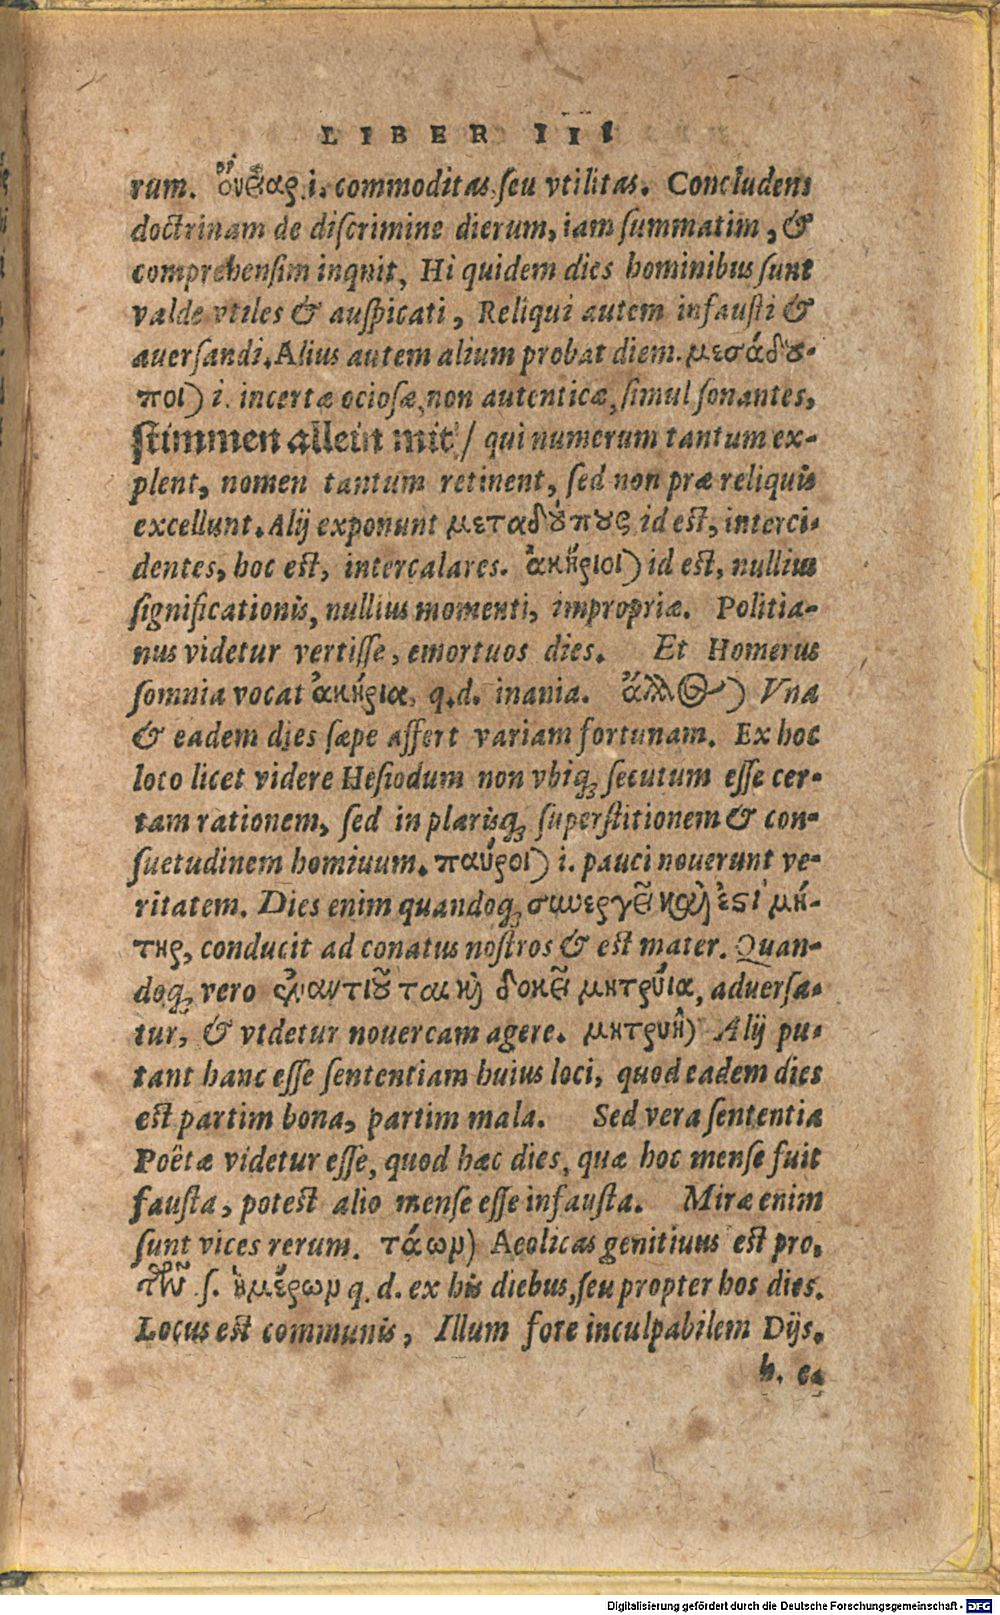 LIBER III
rum. ὄνειαρ i. commoditas seu vtilitas. Concludens
doctrinam de discrimine dierum, iam summatim, &
comprehensim inquit, Hi quidem dies hominibus sunt
valde vtiles & auspicati, Reliqui autem infausti &
auersandi. Alius autem alium probat diem. μετάδου-
ποι) i. incertæ ociosæ, non autenticæ, simul sonantes,
stimmen allein mit / qui numerum tantum ex-
plent, nomen tantum retinent, sed non præ reliquis
excellunt. Alij exponunt μεταδούπους id est, interci-
dentes, hoc est, intercalares. ἀκήριοι) id est, nullius
significationis, nullius momenti, impropriæ. Politia-
nus videtur vertisse, emortuos dies. Et Homerus
somnia vocat ἀκήρια, q.d. inania. ἄλλος) Vna
& eadem dies sæpe affert variam fortunam. Ex hoc
loco licet videre Hesiodum non vbiq; secutum esse cer-
tam rationem, sed in plærisq; superstitionem & con-
suetudinem homiuum. παῦροι) i. pauci nouerunt ve-
ritatem. Dies enim quandoq; συνεργεῖ καὶ ἐστὶ μή-
τηρ, conducit ad conatus nostros & est mater. Quan-
doq; vero ἐναντιοῦται κὶ δοκεῖ μητρυία, aduersa-
tur, & videtur nouercam agere. μητρυιὴ) Alij pu-
tant hanc esse sententiam huius loci, quod eadem dies
est partim bona, partim mala. Sed vera sententia
Poëtæ videtur esse, quod hæc dies, quæ hoc mense fuit
fausta, potest alio mense esse infausta. Miræ enim
sunt vices rerum. τάων) Aeolicas genitiuus est pro,
τῶν .s. ἡμέρων q.d. ex his diebus, seu propter hos dies.
Locus est communis, Illum fore inculpabilem Dijs,
h. e.